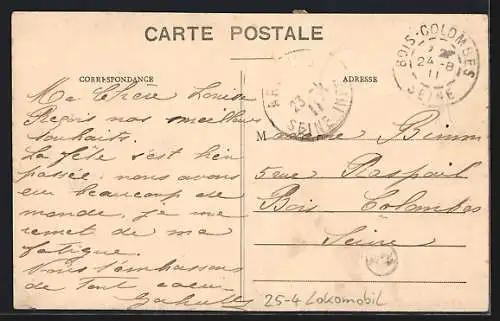 CARTE POSTALE
CORRESPONDANCE
ADRESSE
Ma Chère Louise
Reçois nos meilleurs
souhaits.
La fête s'est bien
passée, nous avons
eu beaucoup de
monde, je me
remet de ma
fatigue.
Nous t'embrassons
de tout coeur
BOIS-COLOMBES
24-8
11
SEINE
23
11
SEINE INF
Madame
5 rue Raspail
Bois Colombes
Seine
25-4 Lokomobil